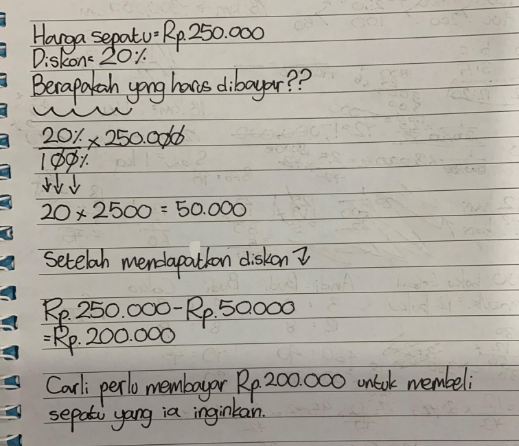 Harga sepatu = Rp. 250.000
Diskon = 20%
Berapakah yang harus dibayar??
20% × 250.000
100%
↓↓↓
20 × 2500 = 50.000
Setelah mendapatkan diskon ↴
Rp. 250.000 - Rp. 50.000
= Rp. 200.000
Carli perlu membayar Rp. 200.000 untuk membeli
sepatu yang ia inginkan.